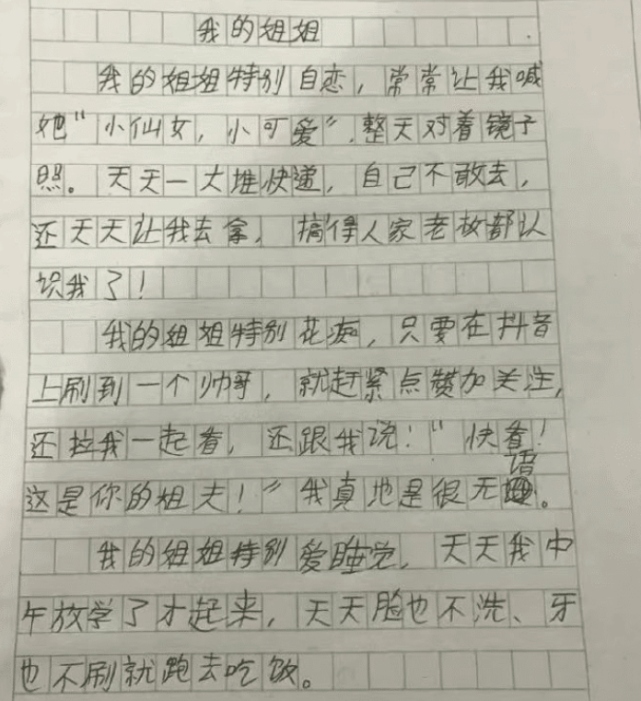 我的姐姐
我的姐姐特别自恋，常常让我喊
她“小仙女，小可爱”.整天对着镜子
照。天天一大堆快递，自己不敢去，
还天天让我去拿，搞得人家老板都认
识我了！
我的姐姐特别花痴，只要在抖音
上刷到一个帅哥，就赶紧点赞加关注，
还拉我一起看，还跟我说！“快看！
这是你的姐夫！”我真地是很无语。
我的姐姐特别爱睡觉，天天我中
午放学了才起来，天天脸也不洗、牙
也不刷就跑去吃饭。